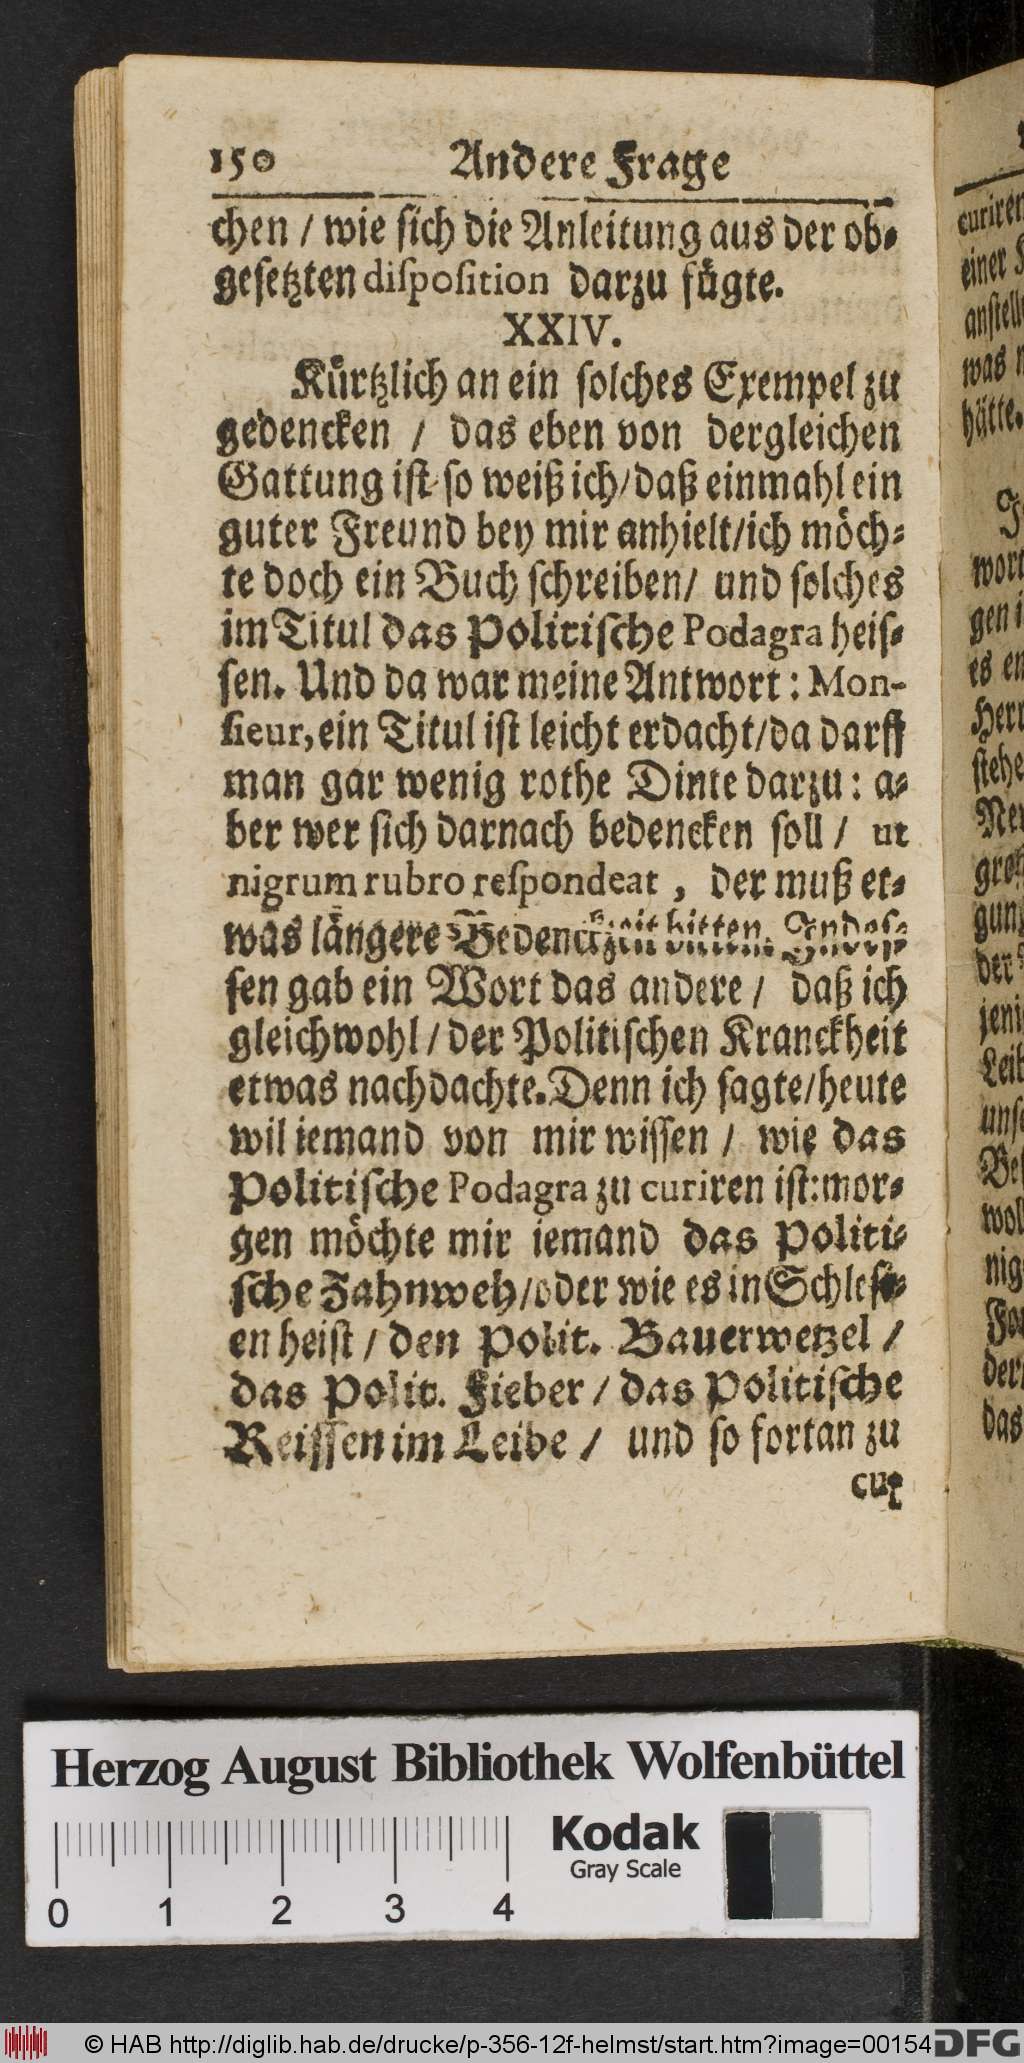 150 Andere Frage
chen / wie sich die Anleitung aus der ob-
gesetzten disposition darzu fůgte.
XXIV.
Kůrtzlich an ein solches Exempel zu
gedencken / das eben von dergleichen
Gattung ist so weiß ich/daß einmahl ein
guter Freund bey mir anhielt/ich möch-
te doch ein Buch schreiben/ und solches
im Titul das Politische Podagra heis-
sen. Und da war meine Antwort: Mon-
sieur, ein Titul ist leicht erdacht/da darff
man gar wenig rothe Dinte darzu: a-
ber wer sich darnach bedencken soll / ut
nigrum rubro respondeat, der muß et-
was längere Bedenckzeit bitten. Indes-
sen gab ein Wort das andere / daß ich
gleichwohl / der Politischen Kranckheit
etwas nachdachte. Denn ich sagte/heute
wil iemand von mir wissen / wie das
Politische Podagra zu curiren ist: mor-
gen möchte mir iemand das Politi-
sche Zahnweh/oder wie es in Schlesi-
en heist / den Polit. Bauerwetzel /
das Polit. Fieber / das Politische
Reissen im Leibe / und so fortan zu
cu-
curiren
einer
anstelle
was
hätte.
wort
gen
es
Herr
stehe
der
jeni
Leib
unse
wol
nig
der
das
Herzog August Bibliothek Wolfenbüttel
0 1 2 3 4
Kodak
Gray Scale
© HAB http://diglib.hab.de/drucke/p-356-12f-helmst/start.htm?image=00154
DFG